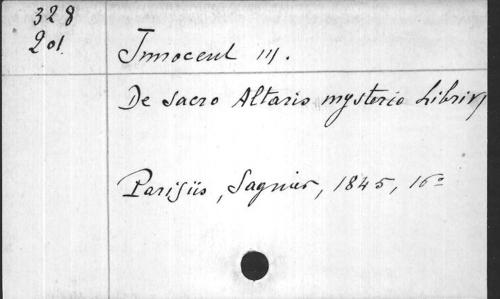 328
201
Innocent III.
De Sacro Altaris mysterio Libri VI
Parisiis, Sagnier, 1845, 16º